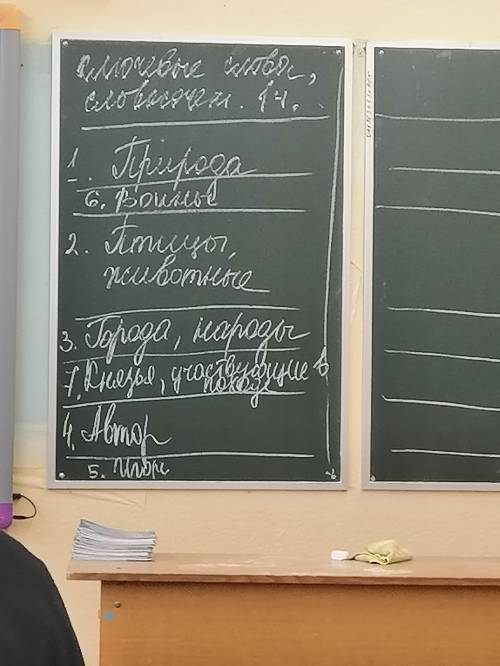 ключевые слова,
словосочет. 1ч.
1. Природа
6. Воины
2. Птицы,
животные
3. Города, народы
7. Князья, участвующие в
походе
4. Автор
5. Игорь